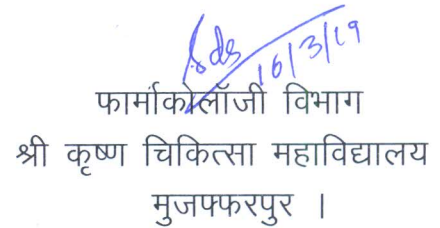 16/3/19
फार्माकोलॉजी विभाग
श्री कृष्ण चिकित्सा महाविद्यालय
मुजफ्फरपुर ।